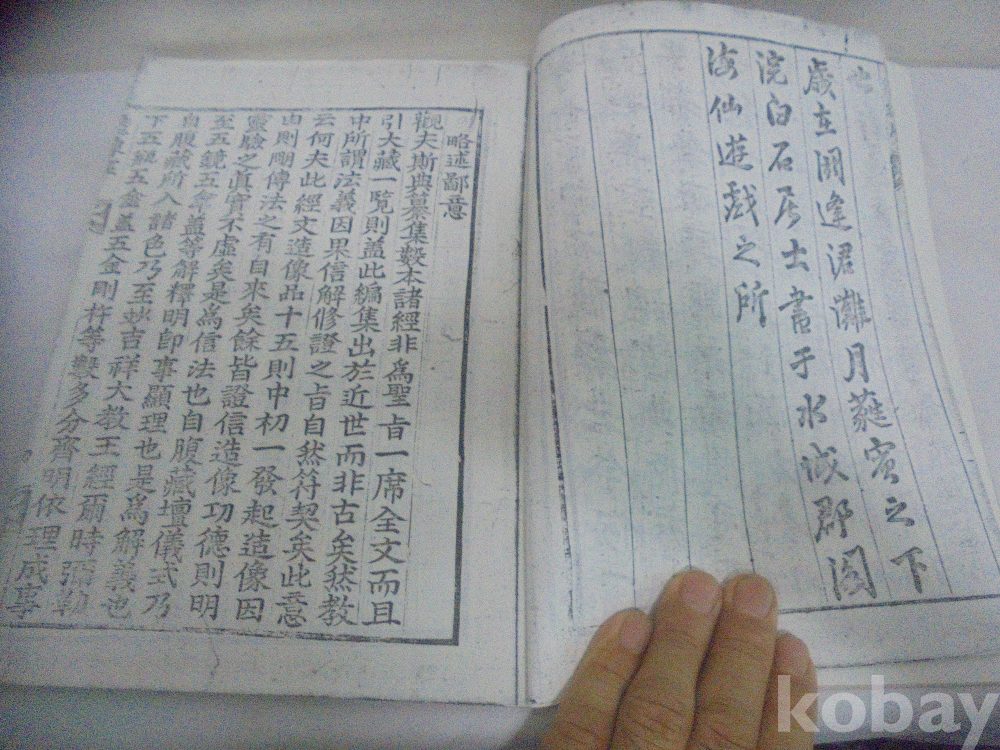 歲在閼逢涒灘月蕤賓之下
浣白石居士書于水城郡閣
海仙遊戱之所
略述鄙意
觀夫斯典纂集數本諸經非爲聖旨一席全文而且
引大藏一覽則盖此編集出於近世而非古矣然教
中所謂法義因果信解修證之旨自然符契矣此意
云何夫此經文造像品十五則中初一發起造像因
由則明傳法之有自來矣餘皆證信造像功德則明
靈驗之眞實不虛矣是爲信法也自腹藏壇儀式乃
至五鏡五傘盖等解釋明卽事顯理也是爲解義也
自腹藏所入諸色乃至妙吉祥大教王經爾時彌勒
下五甁五盖五金剛杵等數多分齊明依理成事
kobay